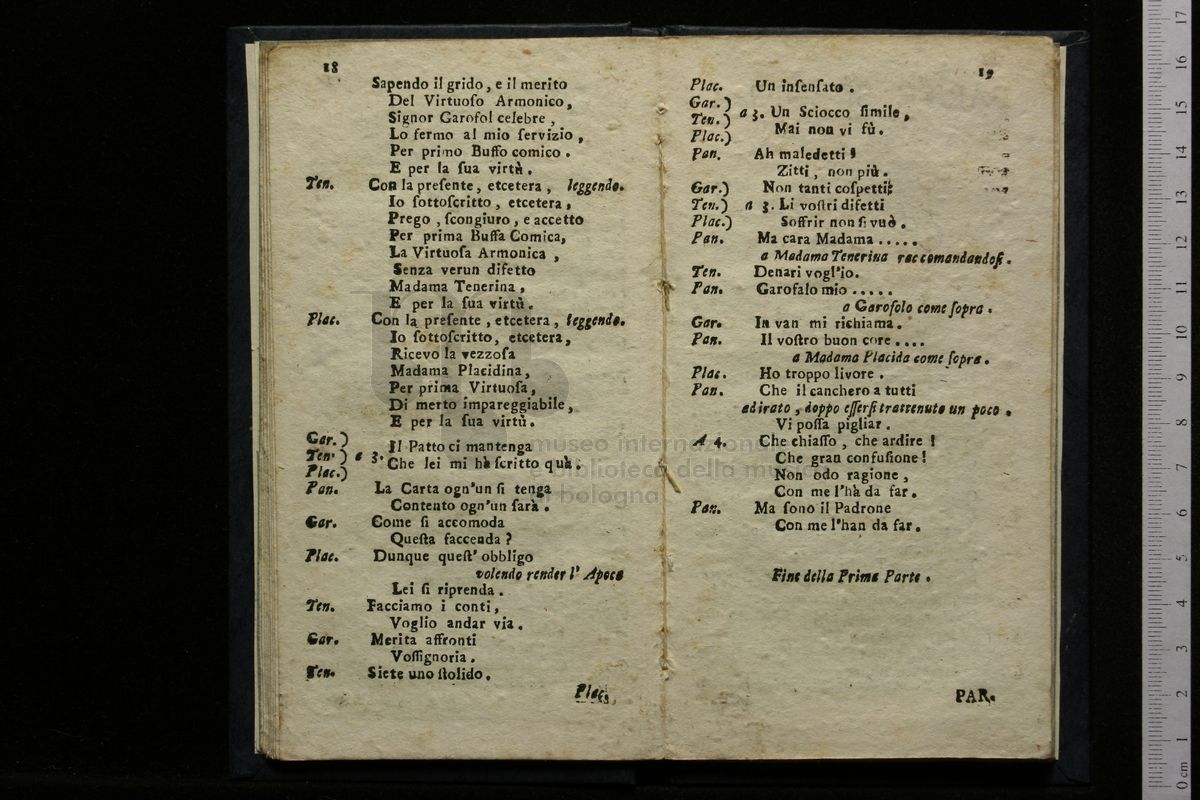 18
Sapendo il grido, e il merito
Del Virtuoſo Armonico,
Signor Garofol celebre,
Lo fermo al mio ſervizio,
Per primo Buffo comico.
E per la ſua virtù.
Ten. Con la preſente, etcetera, leggendo.
Io ſottoſcritto, etcetera,
Prego, ſcongiuro, e accetto
Per prima Buffa Comica,
La Virtuoſa Armonica,
Senza verun difetto
Madama Tenerina,
E per la ſua virtù.
Plac. Con la preſente, etcetera, leggendo.
Io ſottoſcritto, etcetera,
Ricevo la vezzoſa
Madama Placidina,
Per prima Virtuoſa,
Di merto impareggiabile,
E per la ſua virtù.
Gar.)
Ten.) a 3. Il Patto ci mantenga
Plac.) Che lei mi hà ſcritto quà.
Pan. La Carta ogn'un ſi tenga
Contento ogn'un ſarà.
Gar. Come ſi accomoda
Queſta faccenda?
Plac. Dunque queſt' obbligo
volendo render l' Apoca
Lei ſi riprenda.
Ten. Facciamo i conti,
Voglio andar via.
Gar. Merita affronti
Voſſignoria.
Ten. Siete uno ſtolido.
Plac.
19
Plac. Un inſenſato.
Gar.)
Ten.) a 3. Un Sciocco ſimile,
Plac.) Mai non vi fù.
Pan. Ah maledetti!
Zitti, non più.
Gar.) Non tanti coſpetti;
Ten.) a 3. Li voſtri difetti
Plac.) Soffrir non ſi vuò.
Pan. Ma cara Madama.....
a Madama Tenerina raccomandandoſi.
Ten. Denari vogl'io.
Pan. Garofalo mio.....
a Garofolo come ſopra.
Gar. In van mi richiama.
Pan. Il voſtro buon core....
a Madama Placida come ſopra.
Plac. Ho troppo livore.
Pan. Che il canchero a tutti
adirato, doppo eſſerſi trattenuto un poco.
Vi poſſa pigliar.
A 4. Che chiaſſo, che ardire!
Che gran confuſione!
Non odo ragione,
Con me l'hà da far.
Pan. Ma ſono il Padrone
Con me l'han da far.
Fine della Prima Parte.
PAR.
museo internazionale
e biblioteca della musica
di bologna
0 cm 1 2 3 4 5 6 7 8 9 10 11 12 13 14 15 16 17